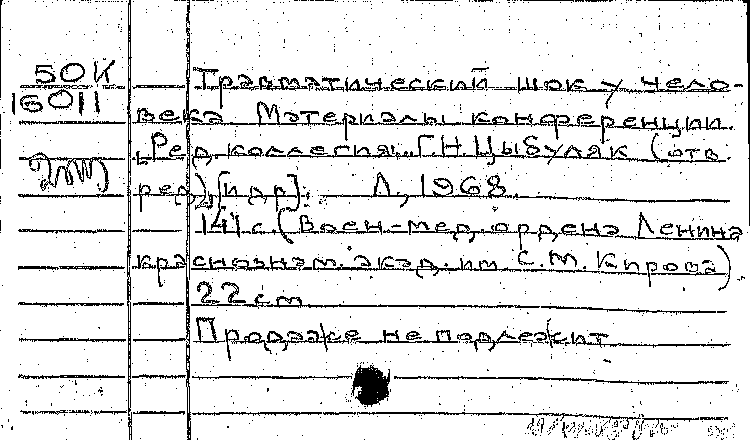 50К
16011
Травматический шок у чело-
века. Материалы конференции.
„Ред. коллегия:„ Г.Н. Цыбуляк (отв.
ред.), [и др]. Л., 1968.
141 с. (Воен-мед. ордена Ленина
краснознам. акад. им С.М. Кирова).
22 см.
Продаже не подлежит